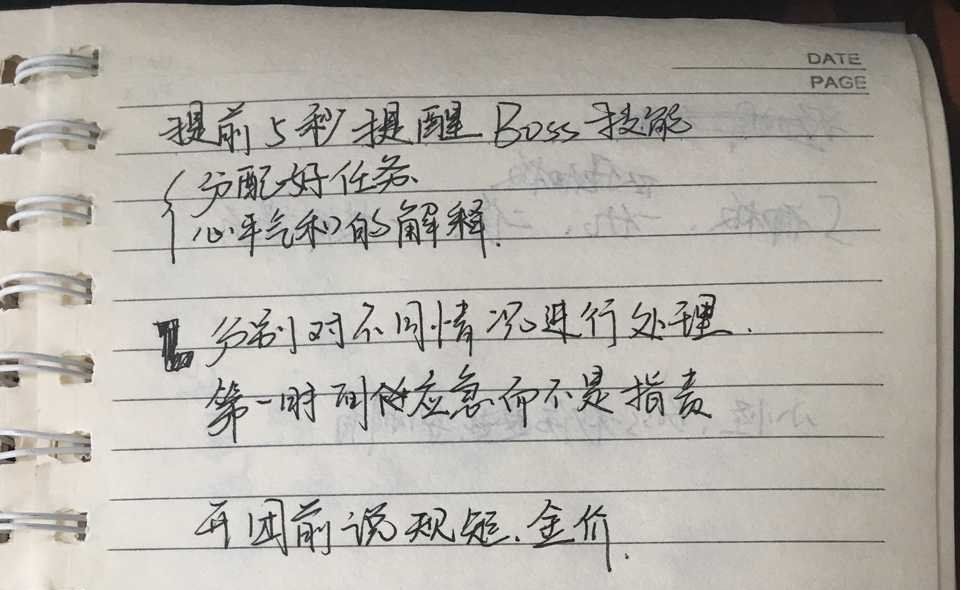 DATE
PAGE
提前5秒提醒Boss技能
分配好任务
心平气和的解释.
分别对不同情况进行处理.
第一时间做应急而不是指责
开团前说规矩、金价.